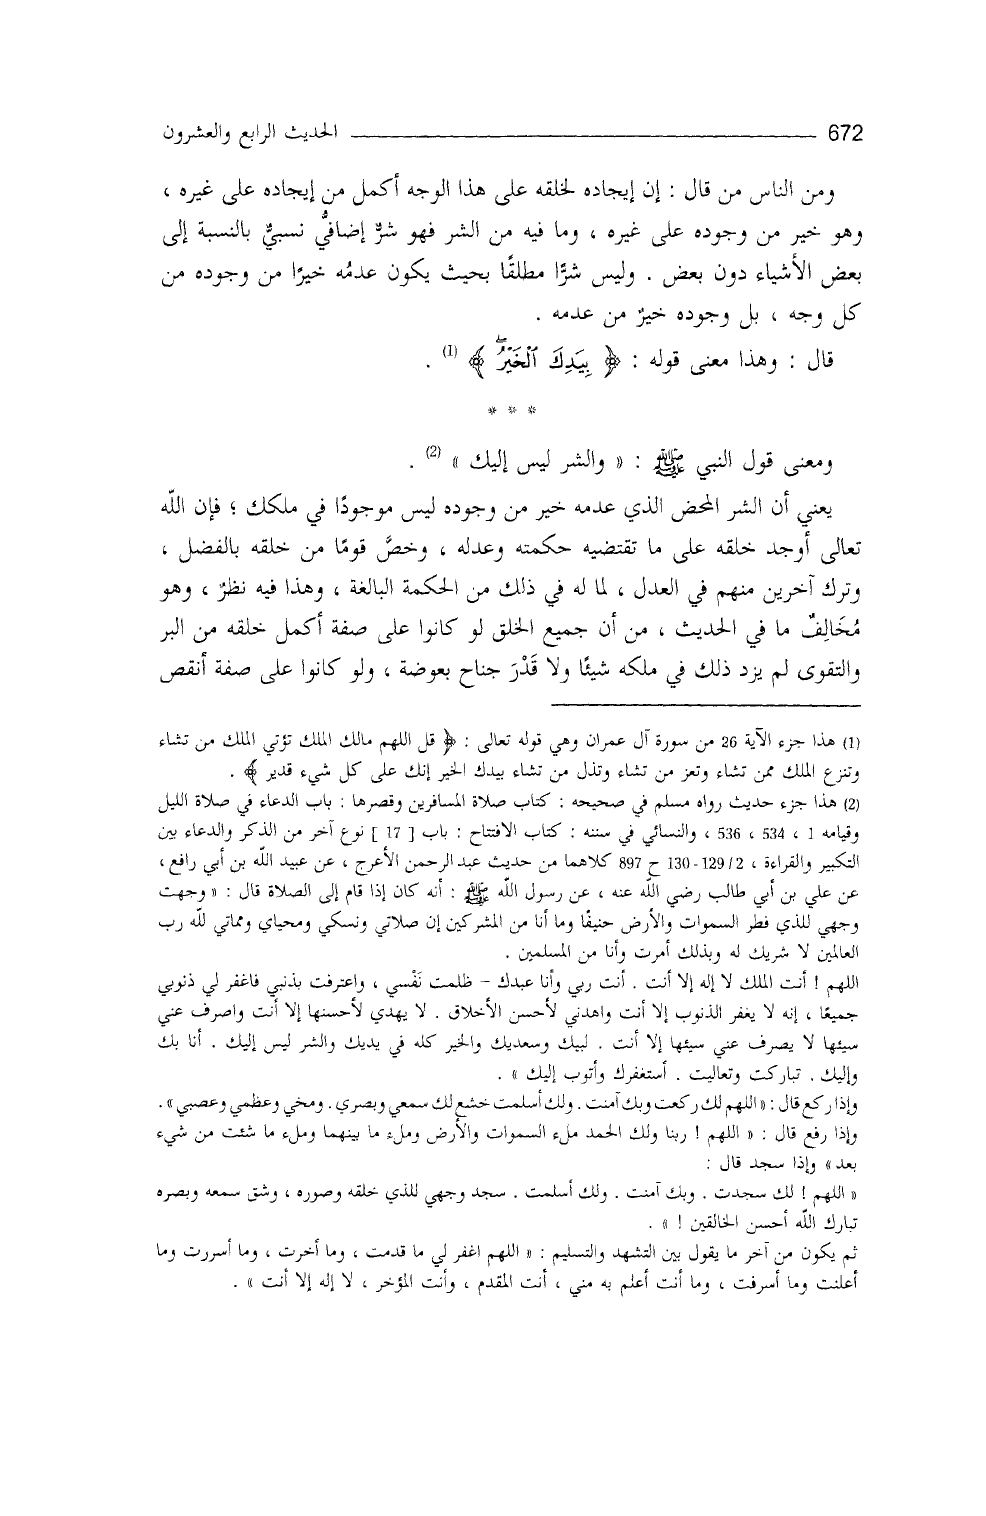 672 الحديث الرابع والعشرون
ومن الناس من قال : إن إيجاده لخلقه على هذا الوجه أكمل من إيجاده على غيره ،
وهو خير من وجوده على غيره ، وما فيه من الشر فهو شرٌّ إضافيٌّ نسبيٌّ بالنسبة إلى
بعض الأشياء دون بعض . وليس شرًّا مطلقًا بحيث يكون عدمُه خيرًا من وجوده من
كل وجه ، بل وجوده خيرٌ من عدمه .
قال : وهذا معنى قوله : ﴿ بِيَدِكَ ٱلْخَيْرُۖ ﴾ (1) .
* * *
ومعنى قول النبي ﷺ : « والشر ليس إليك » (2) .
يعني أن الشر المحض الذي عدمه خير من وجوده ليس موجودًا في ملكك ؛ فإن اللّه
تعالى أوجد خلقه على ما تقتضيه حكمته وعدله ، وخصَّ قومًا من خلقه بالفضل ،
وترك آخرين منهم في العدل ، لما له في ذلك من الحكمة البالغة ، وهذا فيه نظرٌ ، وهو
مُخَالِفٌ ما في الحديث ، من أن جميع الخلق لو كانوا على صفة أكمل خلقه من البر
والتقوى لم يزد ذلك في ملكه شيئًا ولا قَدْرَ جناح بعوضة ، ولو كانوا على صفة أنقص
(1) هذا جزء الآية 26 من سورة آل عمران وهي قوله تعالى : ﴿ قل اللهم مالك الملك تؤتي الملك من تشاء
وتنزع الملك ممن تشاء وتعز من تشاء وتذل من تشاء بيدك الخير إنك على كل شيء قدير ﴾ .
(2) هذا جزء حديث رواه مسلم في صحيحه : كتاب صلاة المسافرين وقصرها : باب الدعاء في صلاة الليل
وقيامه 1 ، 534 ، 536 ، والنسائي في سننه : كتاب الافتتاح : باب [ 17 ] نوع آخر من الذكر والدعاء بين
التكبير والقراءة ، 2/ 129-130 ح 897 كلاهما من حديث عبد الرحمن الأعرج ، عن عبيد اللّه بن أبي رافع ،
عن علي بن أبي طالب رضي اللّه عنه ، عن رسول اللّه ﷺ : أنه كان إذا قام إلى الصلاة قال : « وجهت
وجهي للذي فطر السموات والأرض حنيفًا وما أنا من المشركين إن صلاتي ونسكي ومحياي ومماتي للّه رب
العالمين لا شريك له وبذلك أمرت وأنا من المسلمين .
اللهم ! أنت الملك لا إله إلا أنت . أنت ربي وأنا عبدك - ظلمت نَفْسي ، واعترفت بذنبي فاغفر لي ذنوبي
جميعًا ، إنه لا يغفر الذنوب إلا أنت واهدني لأحسن الأخلاق . لا يهدي لأحسنها إلا أنت واصرف عني
سيئها لا يصرف عني سيئها إلا أنت . لبيك وسعديك والخير كله في يديك والشر ليس إليك . أنا بك
وإليك . تباركت وتعاليت . أستغفرك وأتوب إليك » .
وإذا ركع قال : « اللهم لك ركعت وبك آمنت . ولك أسلمت خشع لك سمعي وبصري . ومخي وعظمي وعصبي » .
وإذا رفع قال : « اللهم ! ربنا ولك الحمد ملء السموات والأرض وملء ما بينهما وملء ما شئت من شيء
بعد » وإذا سجد قال :
« اللهم ! لك سجدت . وبك آمنت . ولك أسلمت . سجد وجهي للذي خلقه وصوره ، وشق سمعه وبصره
تبارك اللّه أحسن الخالقين ! » .
ثم يكون من آخر ما يقول بين التشهد والتسليم : « اللهم اغفر لي ما قدمت ، وما أخرت ، وما أسررت وما
أعلنت وما أسرفت ، وما أنت أعلم به مني ، أنت المقدم ، وأنت المؤخر ، لا إله إلا أنت » .